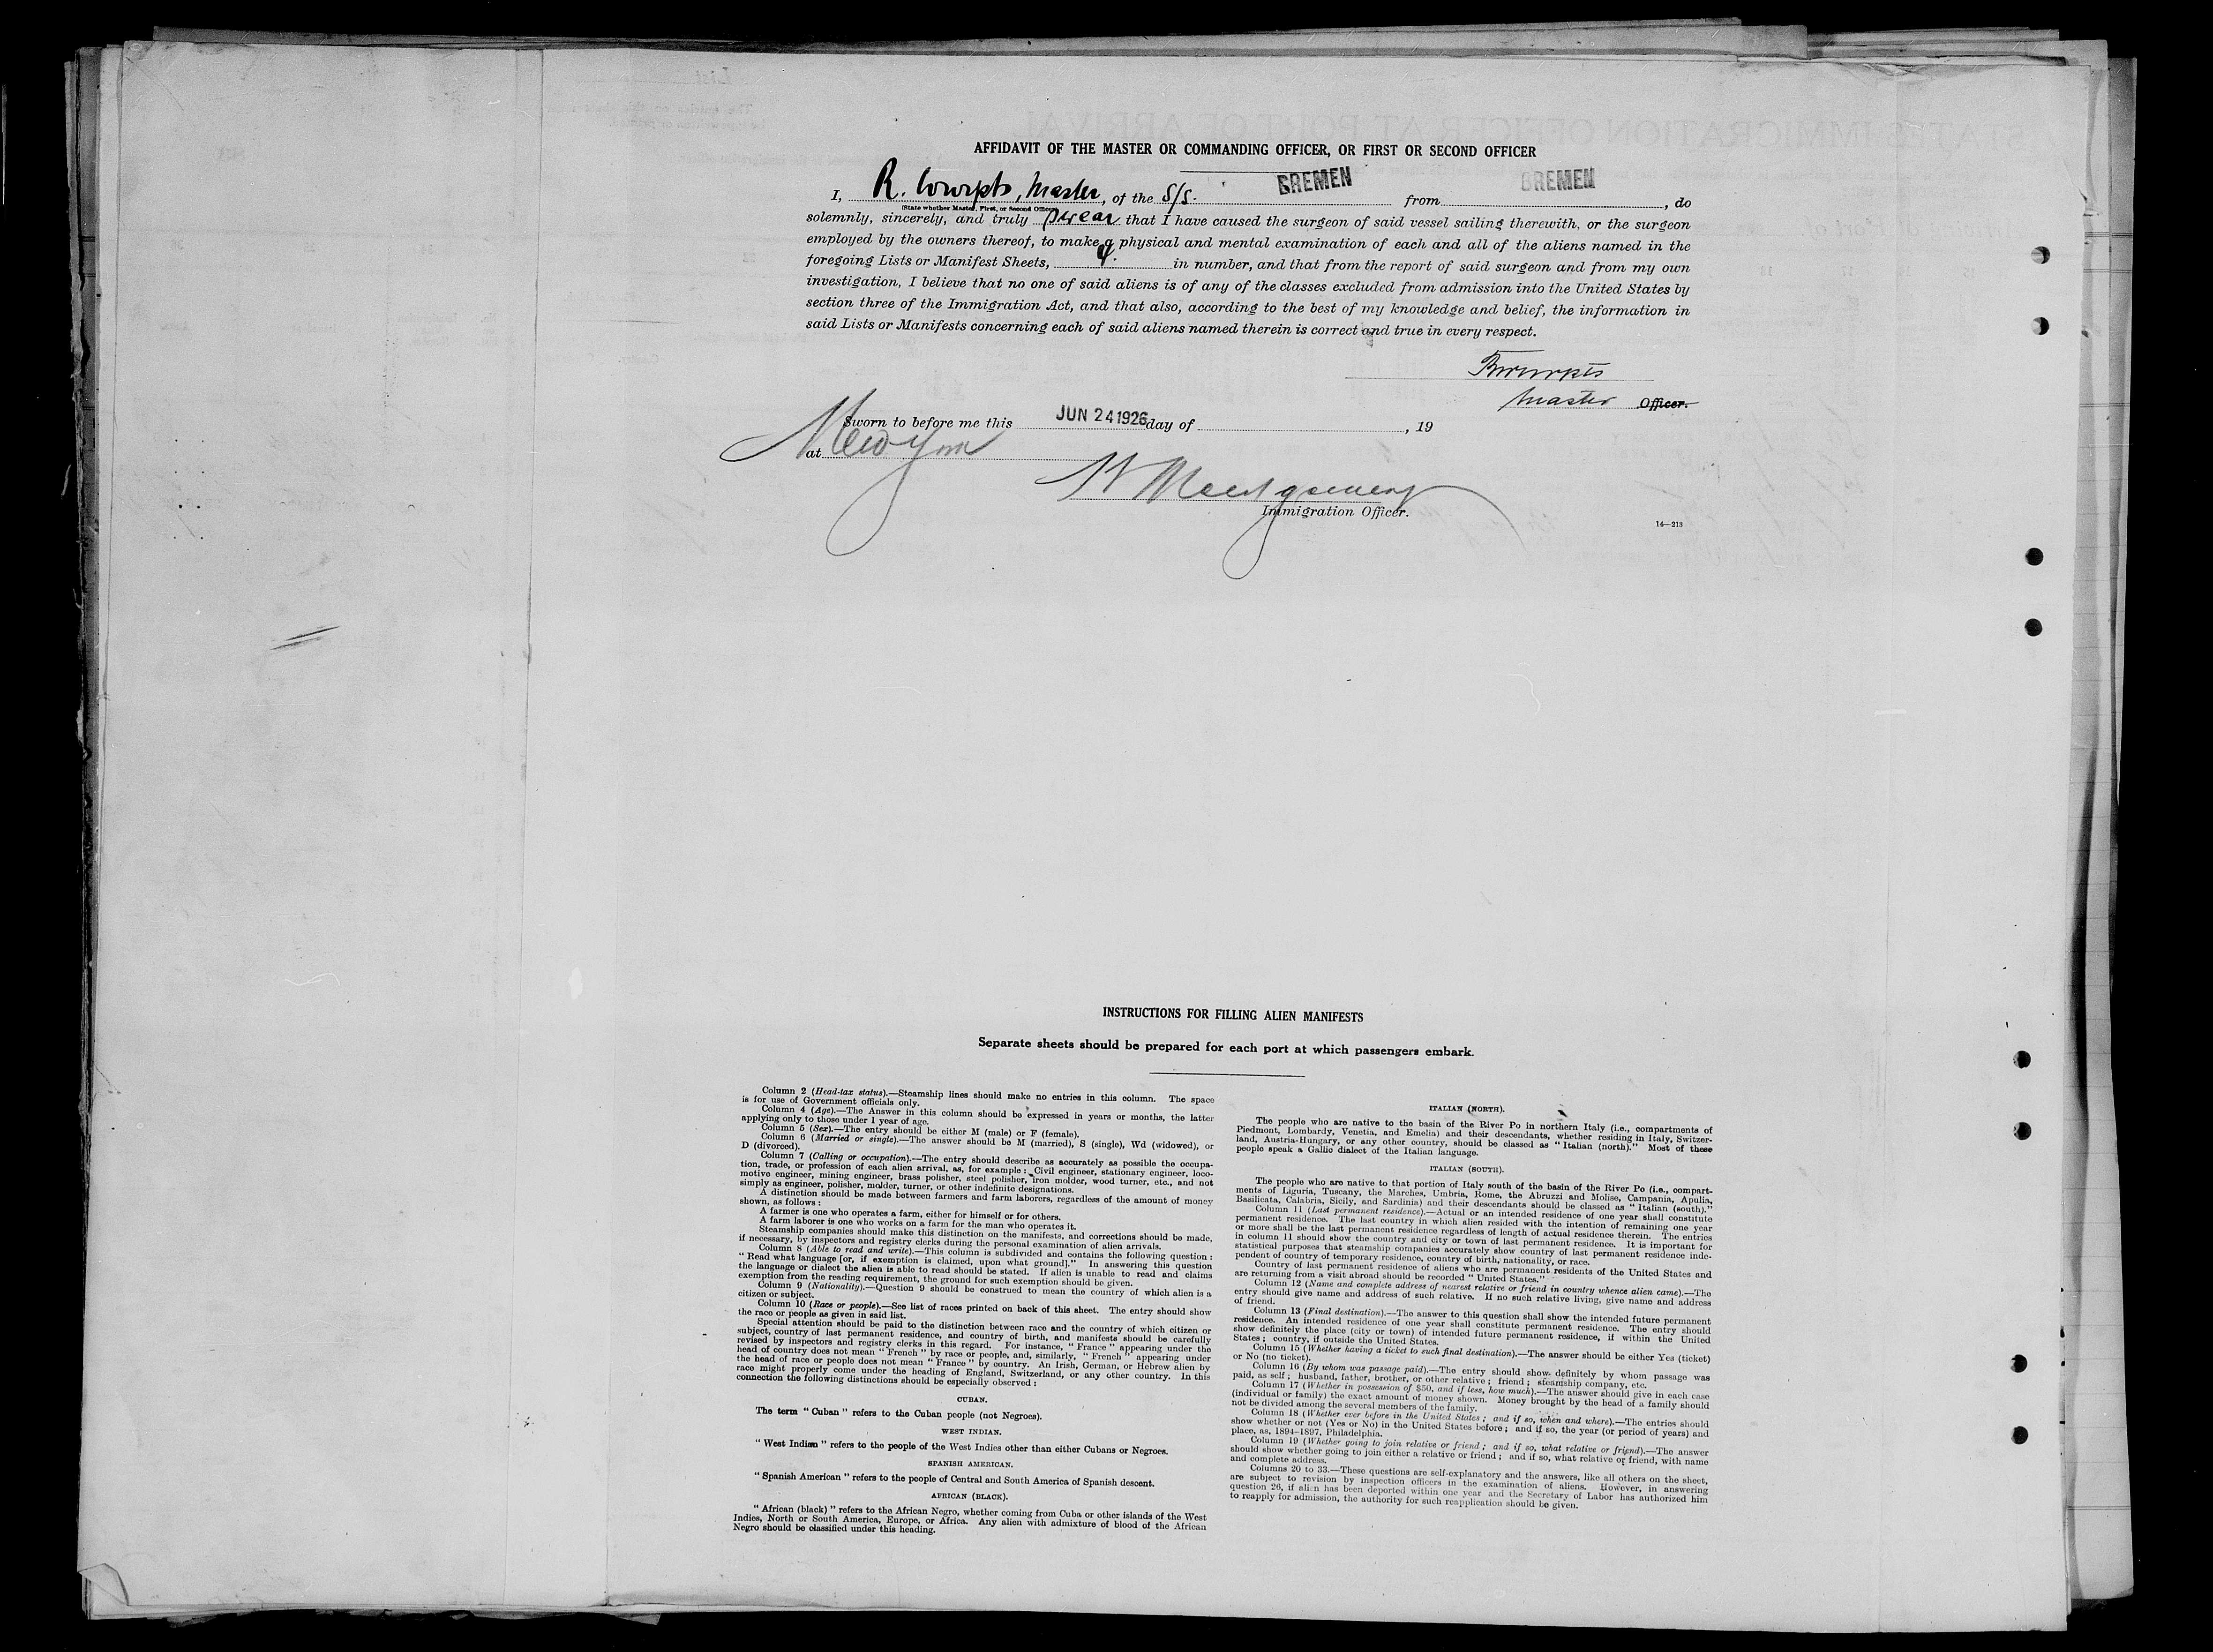 AFFIDAVIT OF THE MASTER OR COMMANDING OFFICER, OR FIRST OR SECOND OFFICER
I, R. Wurpts, Master, of the S/S. BREMEN from BREMEN, do
(State whether Master, First, or Second Officer)
solemnly, sincerely, and truly swear that I have caused the surgeon of said vessel sailing therewith, or the surgeon
employed by the owners thereof, to make a physical and mental examination of each and all of the aliens named in the
foregoing Lists or Manifest Sheets, in number, and that from the report of said surgeon and from my own
investigation, I believe that no one of said aliens is of any of the classes excluded from admission into the United States by
section three of the Immigration Act, and that also, according to the best of my knowledge and belief, the information in
said Lists or Manifests concerning each of said aliens named therein is correct and true in every respect.
Master Officer.
Sworn to before me this JUN 24 1926 day of , 19
at New York
Montgomery
Immigration Officer.
14—213
INSTRUCTIONS FOR FILLING ALIEN MANIFESTS
Separate sheets should be prepared for each port at which passengers embark.
Column 2 (Head-tax status).—Steamship lines should make no entries in this column. The space
is for use of Government officials only.
Column 4 (Age).—The Answer in this column should be expressed in years or months, the latter
applying only to those under 1 year of age.
Column 5 (Sex).—The entry should be either M (male) or F (female).
Column 6 (Married or single).—The answer should be M (married), S (single), Wd (widowed), or
D (divorced).
Column 7 (Calling or occupation).—The entry should describe as accurately as possible the occupa-
tion, trade, or profession of each alien arrival, as, for example: Civil engineer, stationary engineer, loco-
motive engineer, mining engineer, brass polisher, steel polisher, iron molder, wood turner, etc., and not
simply as engineer, polisher, molder, turner, or other indefinite designations.
A distinction should be made between farmers and farm laborers, regardless of the amount of money
shown, as follows:
A farmer is one who operates a farm, either for himself or for others.
A farm laborer is one who works on a farm for the man who operates it.
Steamship companies should make this distinction on the manifests, and corrections should be made,
if necessary, by inspectors and registry clerks during the personal examination of alien arrivals.
Column 8 (Able to read and write).—This column is subdivided and contains the following question:
"Read what language [or, if exemption is claimed, upon what ground]." In answering this question
the language or dialect the alien is able to read should be stated. If alien is unable to read and claims
exemption from the reading requirement, the ground for such exemption should be given.
Column 9 (Nationality).—Question 9 should be construed to mean the country of which alien is a
citizen or subject.
Column 10 (Race or people).—See list of races printed on back of this sheet. The entry should show
the race or people as given in said list.
Special attention should be paid to the distinction between race and the country of which citizen or
subject, country of last permanent residence, and country of birth, and manifests should be carefully
revised by inspectors and registry clerks in this regard. For instance, "France" appearing under the
head of country does not mean "French" by race or people, and, similarly, "French" appearing under
the head of race or people does not mean "France" by country. An Irish, German, or Hebrew alien by
race might properly come under the heading of England, Switzerland, or any other country. In this
connection the following distinctions should be especially observed:
CUBAN.
The term "Cuban" refers to the Cuban people (not Negroes).
WEST INDIAN.
"West Indian" refers to the people of the West Indies other than either Cubans or Negroes.
SPANISH AMERICAN.
"Spanish American" refers to the people of Central and South America of Spanish descent.
AFRICAN (BLACK).
"African (black)" refers to the African Negro, whether coming from Cuba or other islands of the West
Indies, North or South America, Europe, or Africa. Any alien with admixture of blood of the African
Negro should be classified under this heading.
ITALIAN (NORTH).
The people who are native to the basin of the River Po in northern Italy (i.e., compartments of
Piedmont, Lombardy, Venetia, and Emelia) and their descendants, whether residing in Italy, Switzer-
land, Austria-Hungary, or any other country, should be classed as "Italian (north)." Most of these
people speak a Gallic dialect of the Italian language.
ITALIAN (SOUTH).
The people who are native to that portion of Italy south of the basin of the River Po (i.e., compart-
ments of Liguria, Tuscany, the Marches, Umbria, Rome, the Abruzzi and Molise, Campania, Apulia,
Basilicata, Calabria, Sicily, and Sardinia) and their descendants should be classed as "Italian (south)."
Column 11 (Last permanent residence).—Actual or an intended residence of one year shall constitute
permanent residence. The last country in which alien resided with the intention of remaining one year
or more shall be the last permanent residence regardless of length of actual residence therein. The entries
in column 11 should show the country and city or town of last permanent residence. It is important for
statistical purposes that steamship companies accurately show country of last permanent residence inde-
pendent of country of temporary residence, country of birth, nationality, or race.
Country of last permanent residence of aliens who are permanent residents of the United States and
are returning from a visit abroad should be recorded "United States."
Column 12 (Name and complete address of nearest relative or friend in country whence alien came).—The
entry should give name and address of such relative. If no such relative living, give name and address
of friend.
Column 13 (Final destination).—The answer to this question shall show the intended future permanent
residence. An intended residence of one year shall constitute permanent residence. The entry should
show definitely the place (city or town) of intended future permanent residence, if within the United
States; country, if outside the United States.
Column 15 (Whether having a ticket to such final destination).—The answer should be either Yes (ticket)
or No (no ticket).
Column 16 (By whom was passage paid).—The entry should show definitely by whom passage was
paid, as self; husband, father, brother, or other relative; friend; steamship company, etc.
Column 17 (Whether in possession of $50, and if less, how much).—The answer should give in each case
(individual or family) the exact amount of money shown. Money brought by the head of a family should
not be divided among the several members of the family.
Column 18 (Whether ever before in the United States; and if so, when and where).—The entries should
show whether or not (Yes or No) in the United States before; and if so, the year (or period of years) and
place, as, 1894-1897, Philadelphia.
Column 19 (Whether going to join relative or friend; and if so, what relative or friend).—The answer
should show whether going to join either a relative or friend; and if so, what relative or friend, with name
and complete address.
Columns 20 to 33.—These questions are self-explanatory and the answers, like all others on the sheet,
are subject to revision by inspection officers in the examination of aliens. However, in answering
question 26, if alien has been deported within one year and the Secretary of Labor has authorized him
to reapply for admission, the authority for such reapplication should be given.